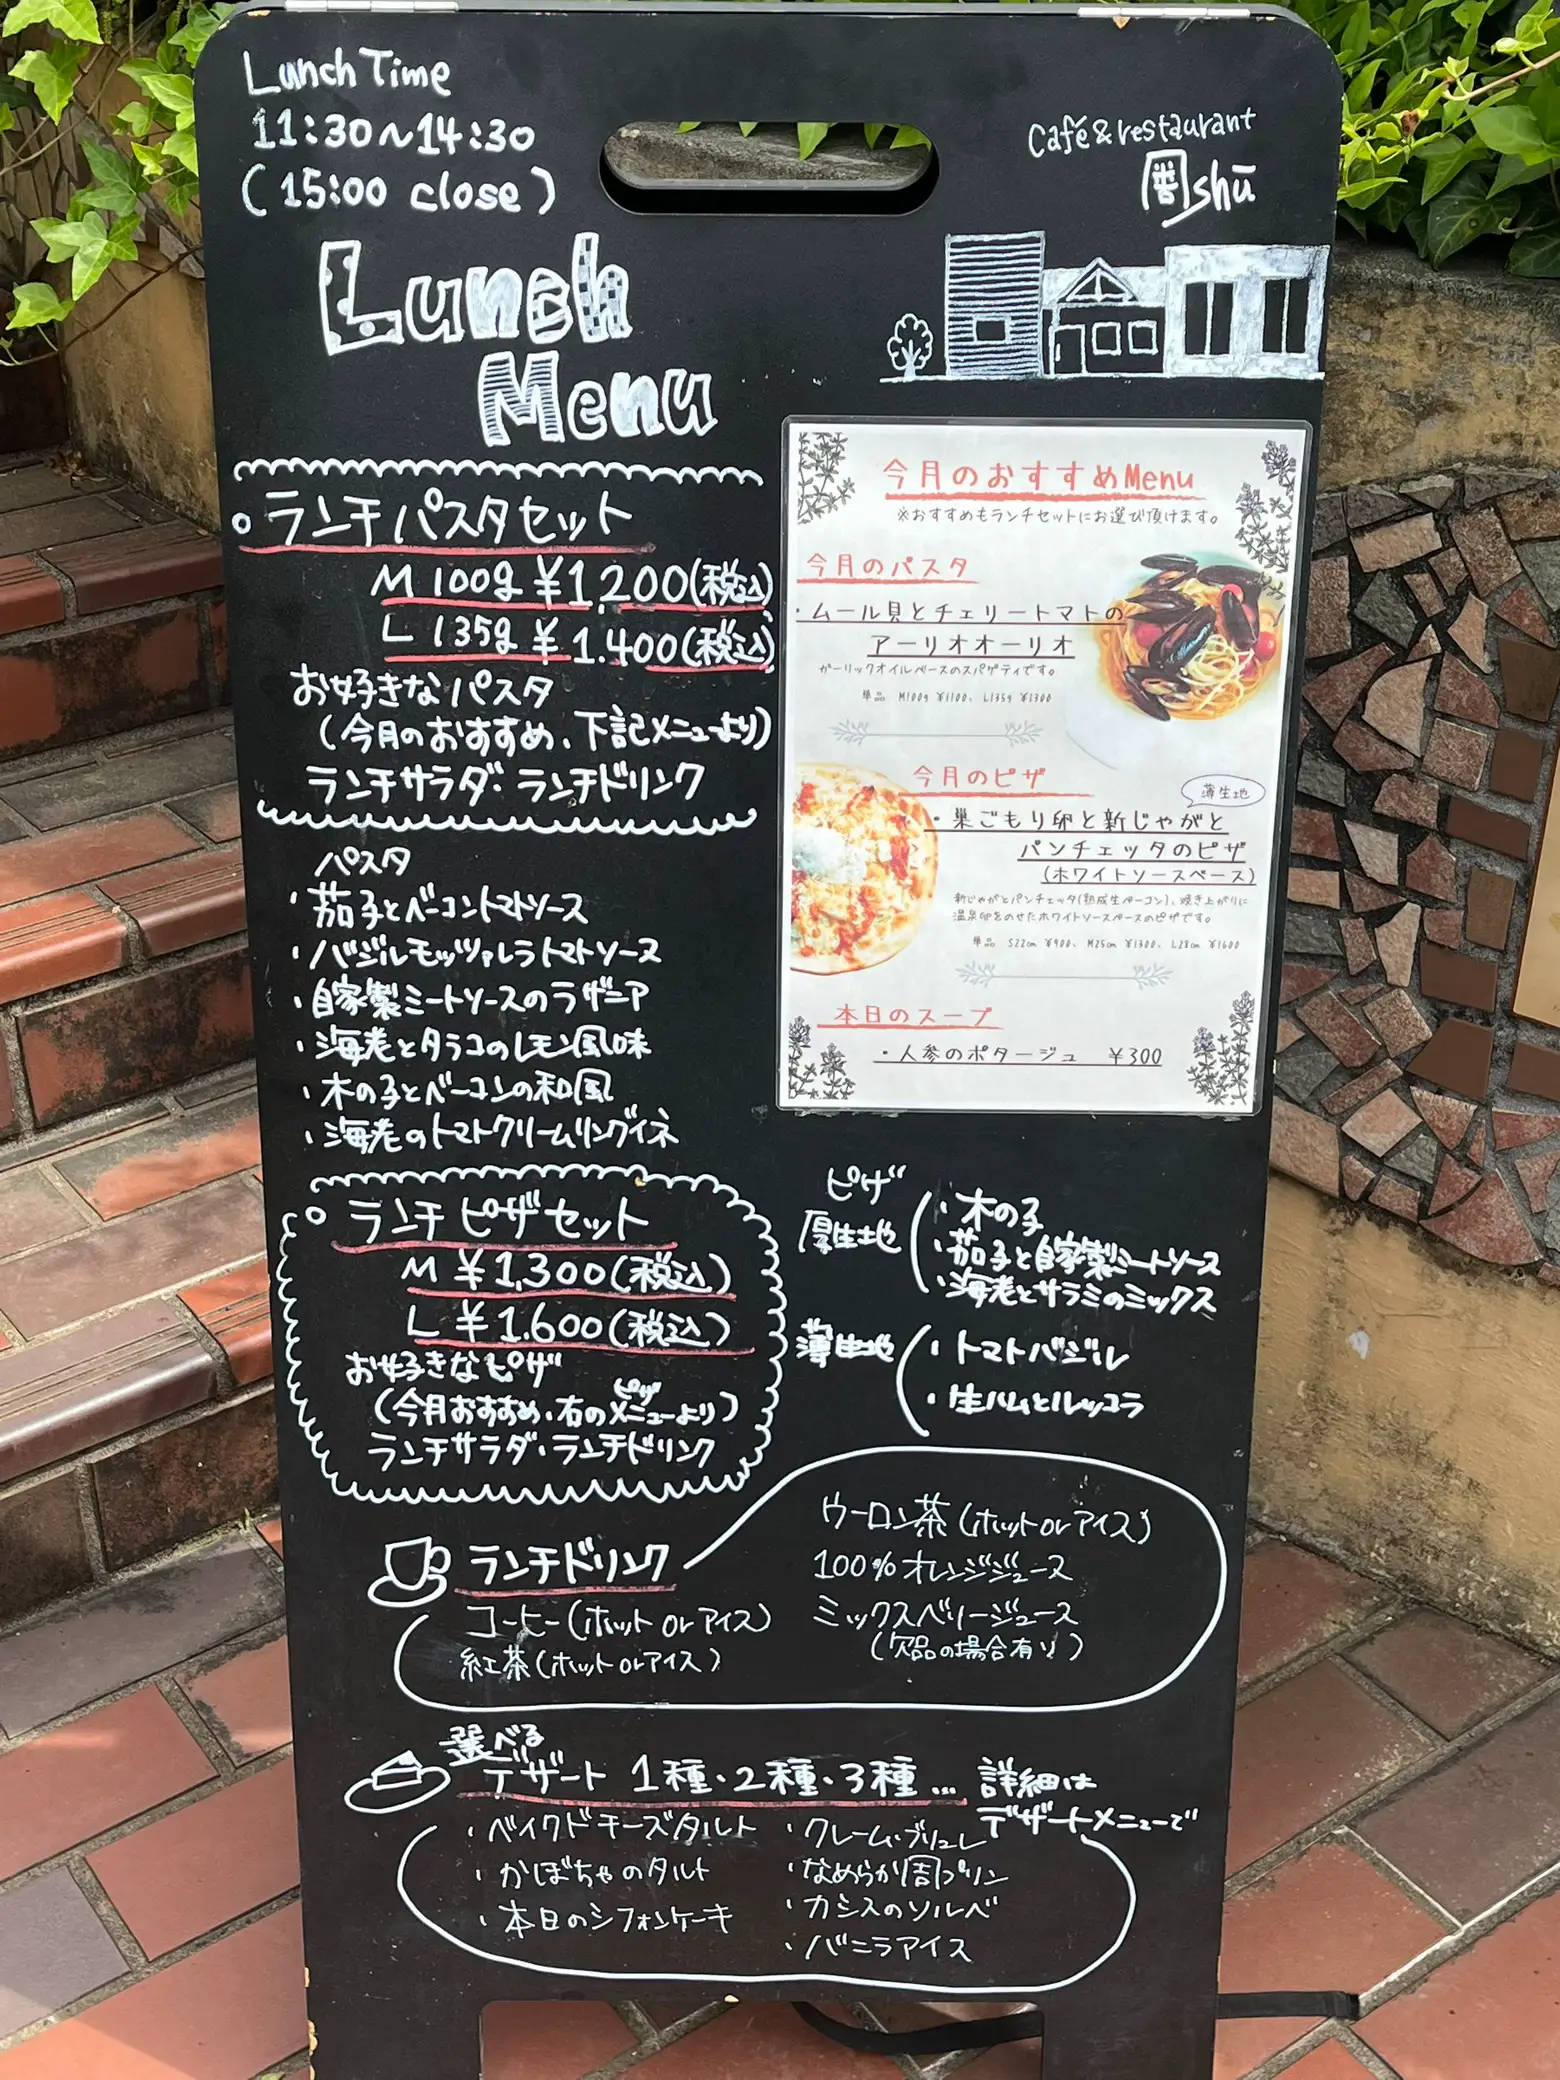 Lunch Time
11:30～14:30
(15:00 close)
Café & restaurant
周shū
Lunch
Menu
○ランチパスタセット
M 100g ¥1,200(税込)
L 135g ¥1.400(税込)
お好きなパスタ
(今月のおすすめ、下記メニューより)
ランチサラダ・ランチドリンク
パスタ
・茄子とベーコントマトソース
・バジルモッツァレラトマトソース
・自家製ミートソースのラザニア
・海老とタラコのレモン風味
・木の子とベーコンの和風
・海老のトマトクリームリングイネ
今月のおすすめMenu
※おすすめもランチセットにお選び頂けます。
今月のパスタ
・ムール貝とチェリートマトの
アーリオオーリオ
ガーリックオイルベースのスパゲティです。
単品 M100g ¥1100、L135g ¥1300
今月のピザ
薄生地
・巣ごもり卵と新じゃがと
パンチェッタのピザ
(ホワイトソースベース)
新じゃがとパンチェッタ(熟成生ベーコン)、焼き上がりに
温泉卵をのせたホワイトソースベースのピザです。
単品 S22cm ¥900、M25cm ¥1300、L28cm ¥1600
本日のスープ
・人参のポタージュ ¥300
○ランチピザセット
M ¥1,300(税込)
L ¥1.600(税込)
お好きなピザ
(今月おすすめ、右のピザメニューより)
ランチサラダ・ランチドリンク
ピザ
厚生地
・木の子
・茄子と自家製ミートソース
・海老とサラミのミックス
薄生地
・トマトバジル
・生ハムとルッコラ
ランチドリンク
コーヒー(ホット or アイス)
紅茶(ホット or アイス)
ウーロン茶(ホット or アイス)
100%オレンジジュース
ミックスベリージュース
(欠品の場合有り)
選べる
デザート 1種・2種・3種… 詳細は
デザートメニューで
・ベイクドチーズタルト
・かぼちゃのタルト
・本日のシフォンケーキ
・クレーム・ブリュレ
・なめらか周プリン
・カシスのソルベ
・バニラアイス